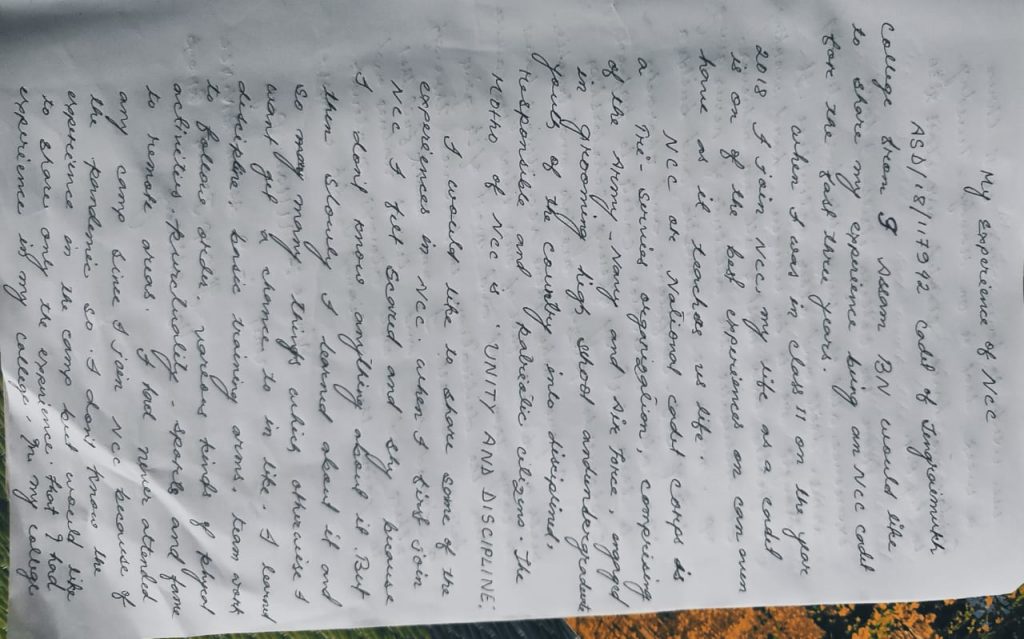 My Experience of NCC
ASD/18/117942 cadt of Tengraimukh
College from 9 Assam BN would like
to share my experience being an NCC cadet
for the last three years.
when I was in class 11 on the year
2018 I join NCC my life as a cadet
is on of the best experiences on can ever
have as it teaches us life.
NCC or National cadet corps is
a Tri-Services organization, comprising
of the Army-Navy and Air Force, engaged
in grooming high school and undergraduate
youths of the country into disciplined,
Responsible and Patriotic citizens. The
Motho of NCC is 'UNITY AND DISCIPLINE'.
I would like to share some of the
experiences in NCC. when I first join
NCC I felt scared and shy because
I don't know anything about it. But
then slowly I learnd about it and
so many many things which otherwise I
wont get a chance to in life. I learnt
discipline, basic training arms. team work
to follow order. various kinds of physcal
activities. punctuality - sports and fame
to remote areas. I had never attended
any camp since I join NCC because of
the pandemic so I don't know the
experience in the camp but would like
to share only the experience that I had
experience is my college. In my college